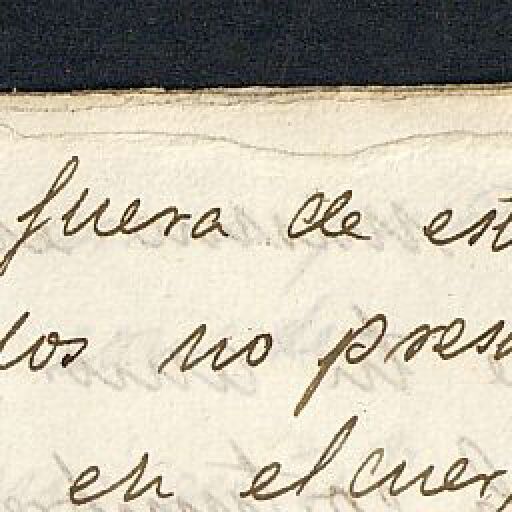 fuera de est
dos no prese
en el cuer